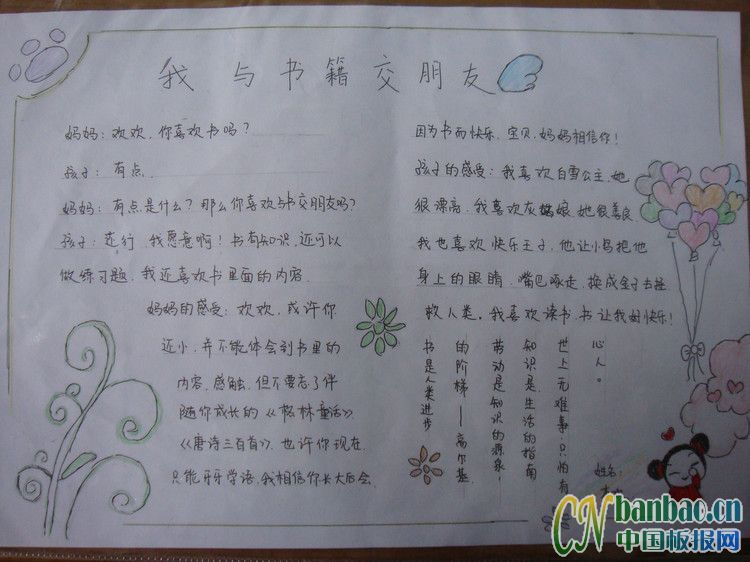 我与书籍交朋友
妈妈：欢欢，你喜欢书吗？
孩子：有点。
妈妈：有点是什么？那么你喜欢与书交朋友吗？
孩子：还行，我愿意啊！书有知识，还可以
做练习题，我还喜欢书里面的内容。
妈妈的感受：欢欢，或许你
还小，并不能体会到书里的
内容，感触，但不要忘了伴
随你成长的《格林童话》，
《唐诗三百首》，也许你现在
只能牙牙学语，我相信你长大后会
因为书而快乐，宝贝，妈妈相信你！
孩子的感受：我喜欢白雪公主，她
很漂亮，我喜欢灰姑娘，她很善良
我也喜欢快乐王子，他让小鸟把他
身上的眼睛，嘴巴啄走，换成金子去拯
救人类。我喜欢读书，书让我好快乐！
书是人类进步
的阶梯——高尔基
劳动是知识的源泉；
知识是生活的指南
世上无难事，只怕有
心人。
姓名：
CNbanbao.cn
中国板报网